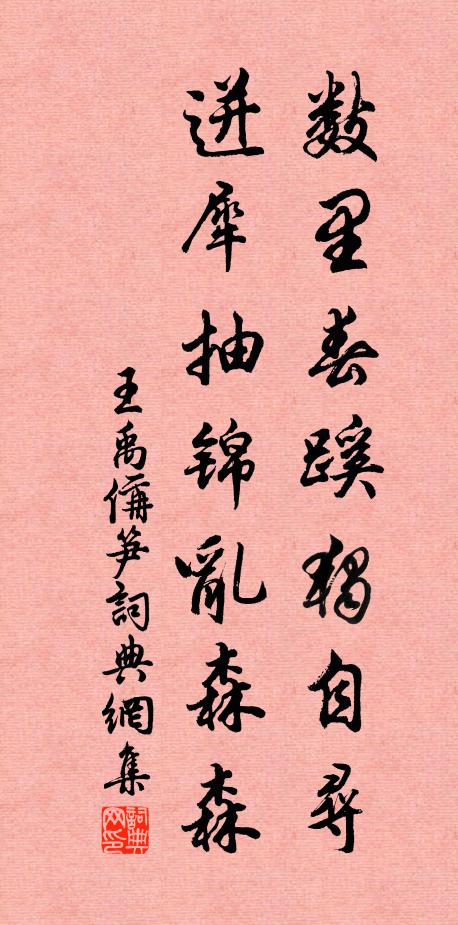 數里春蹊獨自尋
迸犀抽錦亂森森
王禹偁笋詞典網集
詞典网印